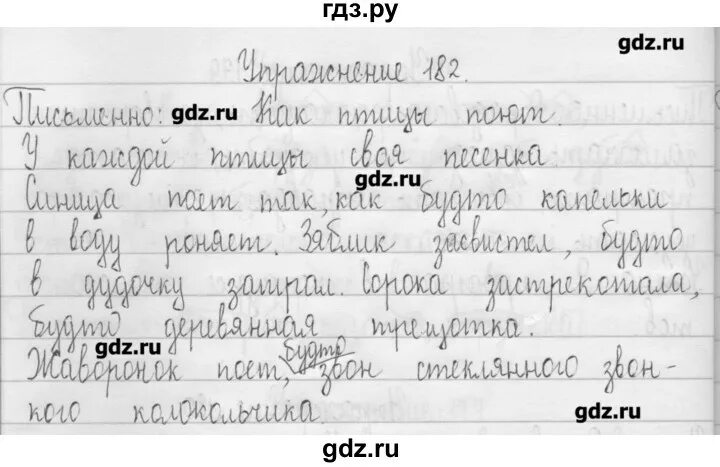 гдз.ру
gdz.ru
Упражнение 182.
Письменно: gdz.ru Как птицы поют.
У каждой птицы своя песенка
gdz.ru
Синица поет так, как будто капельки
в воду роняет. Зяблик засвистел, будто
в дудочку заиграл. Сорока застрекотала,
будто деревянная трещотка.
gdz.ru
будто
Жаворонок поет, звон стеклянного звон-
кого колокольчика.
gdz.ru
gdz.ru